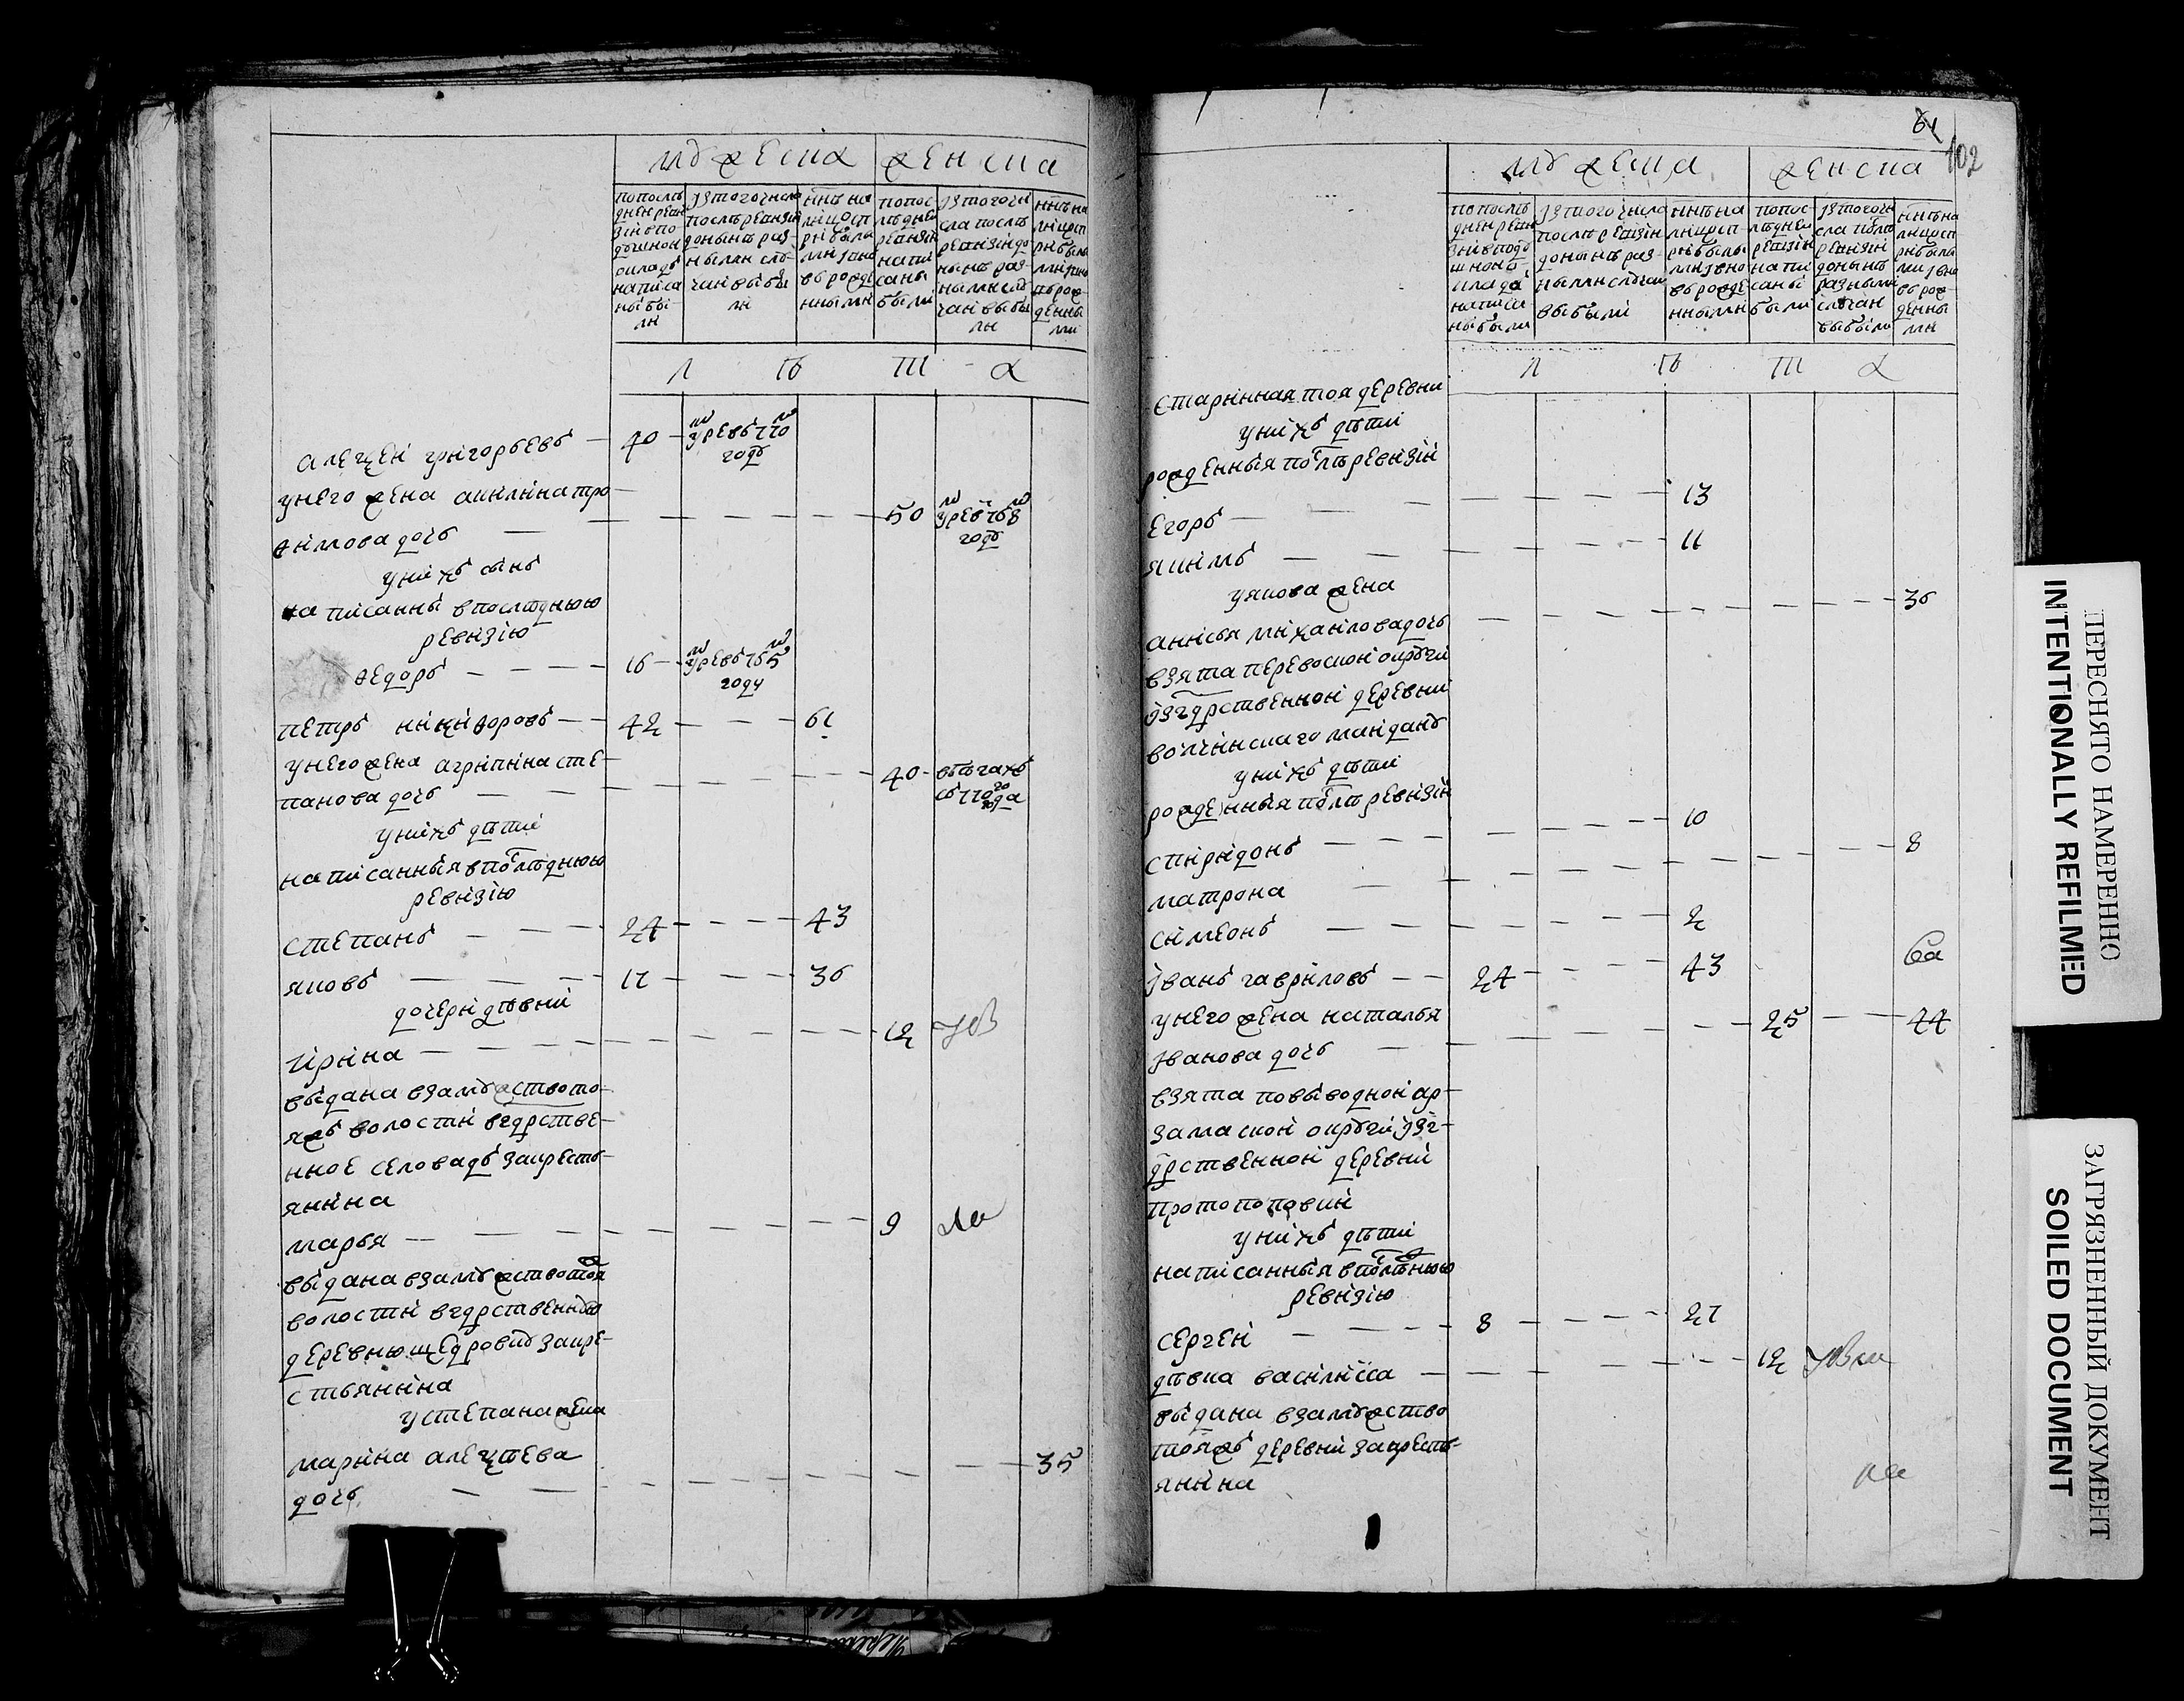 мужеска женска
попослѣ
дней реви
зии впо
душном
окладѣ
написа
ны бы-
ли
изтогочисла
послѣ ревизии
донынѣ раз-
ными слу-
чаи выбы
ли
ннѣ на
лицо сп
рибылы
ми и вно
врожде
нными
попос
лѣдней
ревизии
напи
саны
были
изтогочи
сла послѣ
ревизии до
нынѣ раз-
ными слу
чаи выбы
ли
ннѣ на
лицо сп
рибылы
ми ивно
врож-
денны
ми
л ѣ т а
алеѯеи григорьевъ 40
умре въ 770
годѣ
унего жена акилина тро
ѳимова дочь 50
умре въ 768
годѣ
унихъ сынъ
написанны впослѣднюю
ревизию
ѳедоръ 16
умре въ 765
году
петръ никиѳоровъ 42 61
унего жена агрипина сте-
панова дочь 40 вбѣгахъ
съ 770 го
года
унихъ дѣти
написанныя впослѣднюю
ревизию
степанъ 24 43
яковъ 17 36
дочери дѣвки
ирина 12
выдана взамужство то-
яжъ волости вгдрстве-
нное село вадъ закресть-
янина
марья 9
выдана взамужство тоя
волости вгдрственную
деревню щедровку закре-
стьянина
устепана жена
марина алеѯѣева
дочь 35
61
102
мужеска женска
попослѣ
дней реви
зии вподу
шномъ о-
кладѣ
написа
ны были
изтогочисла
послѣ ревизии
донынѣ раз-
ными случаи
выбыли
ннѣ на
лицо сп-
рибылы
ми ивно
врожде
нными
попос-
лѣдней
ревизии
напи
саны
были
изтогочи
сла послѣ
ревизии
донынѣ
разными
случаи
выбыли
ннѣ на
лицо сп-
рибылы
ми ивно
врож-
денны
ми
л ѣ т а
старинная тоя деревни
унихъ дѣти
рожденныя послѣ ревизии
егоръ 13
якимъ 11
уякова жена
анисья михаилова дочь 36
взята перевоской округи
изгдрственной деревни
волчинскаго майдану
унихъ дѣти
рожденныя послѣ ревизии
спиридонъ 10
матрона 8
симеонъ 2
иванъ гавриловъ 24 43
унего жена наталья
иванова дочь 25 44
взята повыводной ар-
замаской округи изг-
дрственной деревни
протопоповки
унихъ дѣти
написанныя впослѣднюю
ревизию
сергеи 8 27
дѣвка василисса 12
выдана взамужство
тояжъ деревни закресть-
янина
ПЕРЕСНЯТО НАМЕРЕННО
INTENTIONALLY REFILMED
ЗАГРЯЗНЕННЫЙ ДОКУМЕНТ
SOILED DOCUMENT